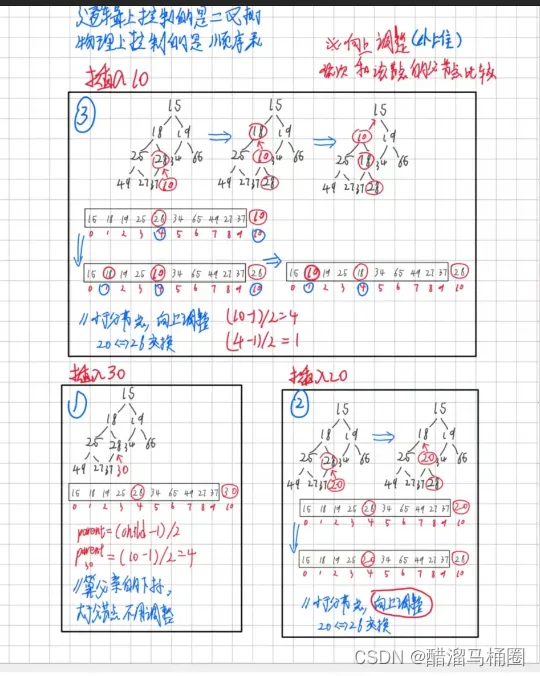 逻辑上控制的是二叉树
物理上控制的是顺序表
※向上调整(小上位)
依次和该点的父节点比较
插入10
③
15 15 15
18 19 18 19 10 19
25 28 34 65 25 10 34 65 25 18 34 65
49 27 37 10 49 27 37 28 49 27 37 28
15 18 19 25 28 34 65 49 27 37 10
0 1 2 3 4 5 6 7 8 9 10
15 18 19 25 10 34 65 49 27 37 28 15 10 19 25 18 34 65 49 27 37 28
0 1 2 3 4 5 6 7 8 9 10 0 1 2 3 4 5 6 7 8 9 10
//小于父节点,向上调整 (10-1)/2=4
20<=>28交换 (4-1)/2=1
插入30
①
15
18 19
25 28 34 65
49 27 37 30
15 18 19 25 28 34 65 49 27 37 30
0 1 2 3 4 5 6 7 8 9 10
parent=(child-1)/2
parent30=(10-1)/2=4
//算父亲的下标,
大于父节点 不用调整
插入20
②
15 15
18 19 18 19
25 28 34 65 25 20 34 65
49 27 37 20 49 27 37 28
15 18 19 25 28 34 65 49 27 37 20
0 1 2 3 4 5 6 7 8 9 10
15 18 19 25 20 34 65 49 27 37 28
0 1 2 3 4 5 6 7 8 9 10
//小于父节点,向上调整
20<=>28交换
CSDN @醋溜马桶圈